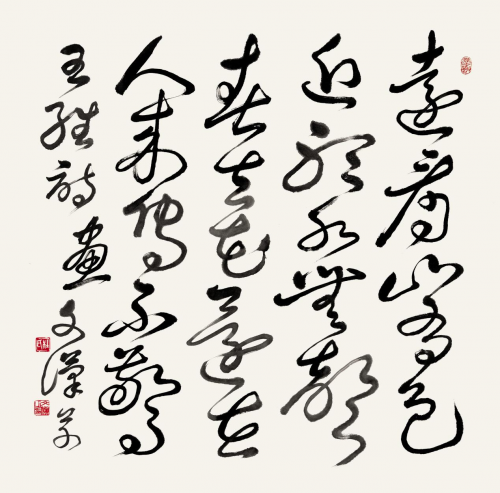 遠看山有色
近聽水無聲
春去花還在
人來鳥不驚
王維詩畫文漢